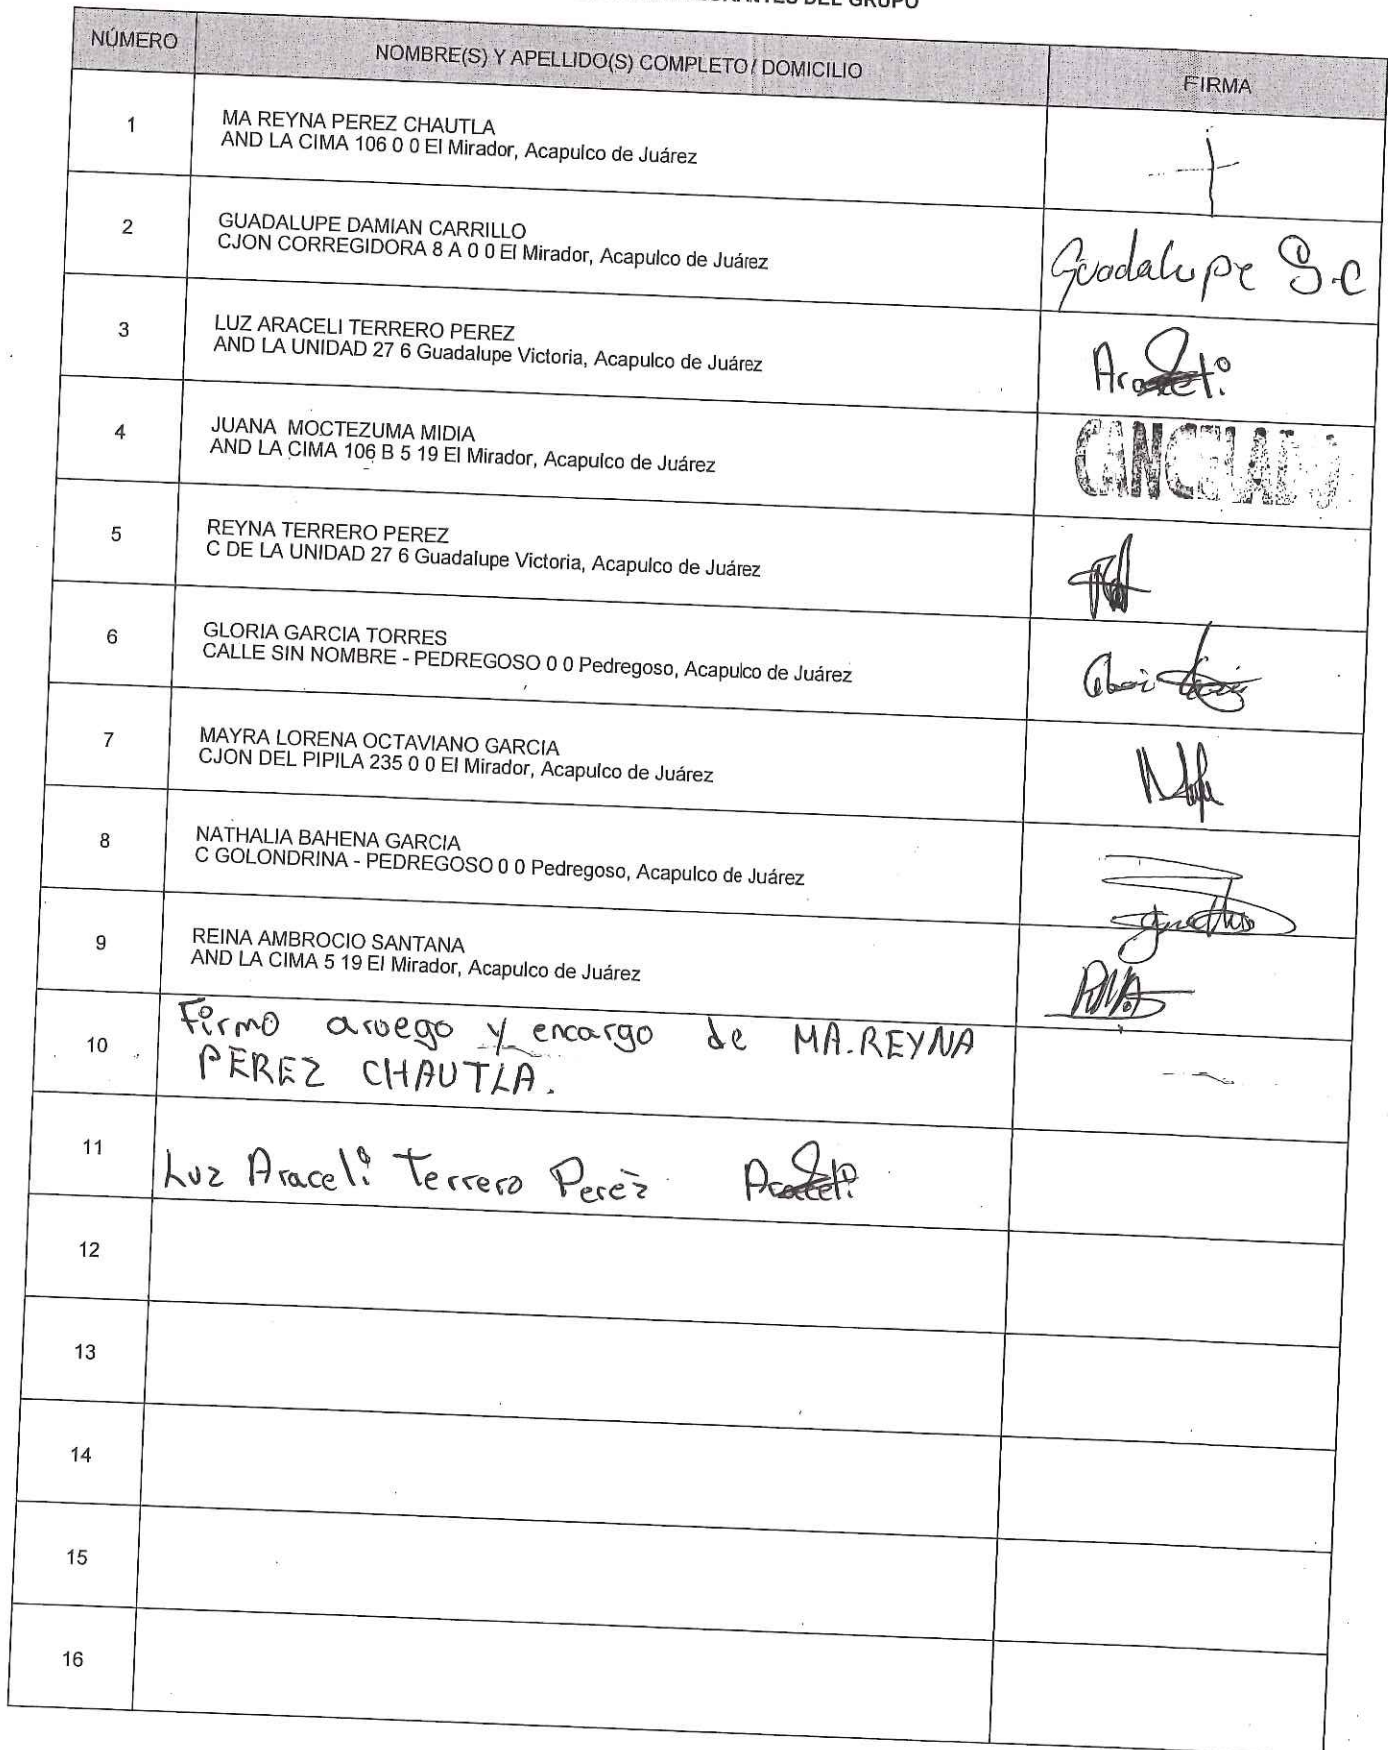 DEL GRUPO
NÚMERO
NOMBRE(S) Y APELLIDO(S) COMPLETO/ DOMICILIO
FIRMA
1
MA REYNA PEREZ CHAUTLA
AND LA CIMA 106 0 0 El Mirador, Acapulco de Juárez
2
GUADALUPE DAMIAN CARRILLO
CJON CORREGIDORA 8 A 0 0 El Mirador, Acapulco de Juárez
Guadalupe D.C
3
LUZ ARACELI TERRERO PEREZ
AND LA UNIDAD 27 6 Guadalupe Victoria, Acapulco de Juárez
Araceli
4
JUANA MOCTEZUMA MIDIA
AND LA CIMA 106 B 5 19 El Mirador, Acapulco de Juárez
CANCELADO
5
REYNA TERRERO PEREZ
C DE LA UNIDAD 27 6 Guadalupe Victoria, Acapulco de Juárez
6
GLORIA GARCIA TORRES
CALLE SIN NOMBRE - PEDREGOSO 0 0 Pedregoso, Acapulco de Juárez
7
MAYRA LORENA OCTAVIANO GARCIA
CJON DEL PIPILA 235 0 0 El Mirador, Acapulco de Juárez
8
NATHALIA BAHENA GARCIA
C GOLONDRINA - PEDREGOSO 0 0 Pedregoso, Acapulco de Juárez
9
REINA AMBROCIO SANTANA
AND LA CIMA 5 19 El Mirador, Acapulco de Juárez
10
Firmo aruego y encargo de MA.REYNA
PEREZ CHAUTLA.
11
Luz Araceli Terrero Perez Araceli
12
13
14
15
16